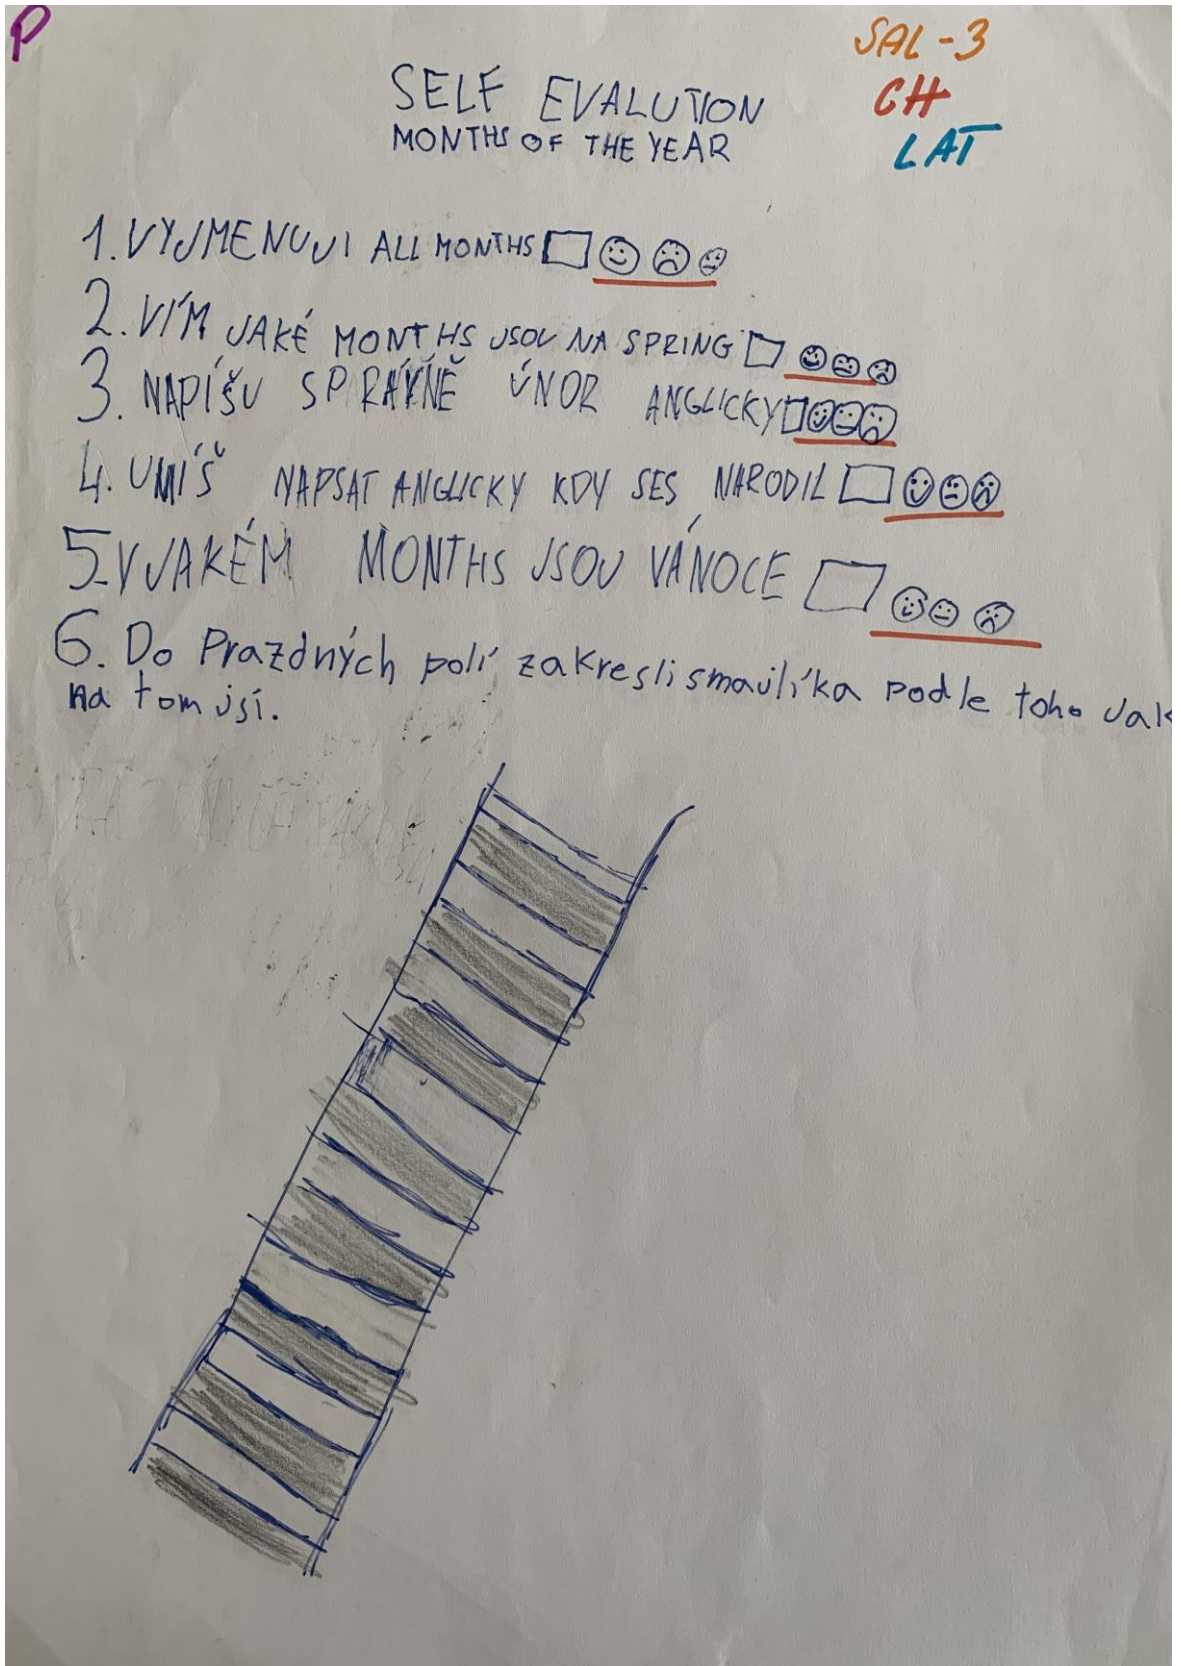 P
SAL-3
CH
LAT
SELF EVALUTION
MONTHS OF THE YEAR
1. VYJMENUJI ALL MONTHS
2. VÍM JAKÉ MONTHS JSOU NA SPRING
3. NAPÍŠU SPRÁVNĚ ÚNOR ANGLICKY
4. UMÍŠ NAPSAT ANGLICKY KDY SES NARODIL
5. V JAKÉM MONTHS JSOU VÁNOCE
6. Do Prazdných polí zakresli smajlíka podle toho jak
na tom jsi.